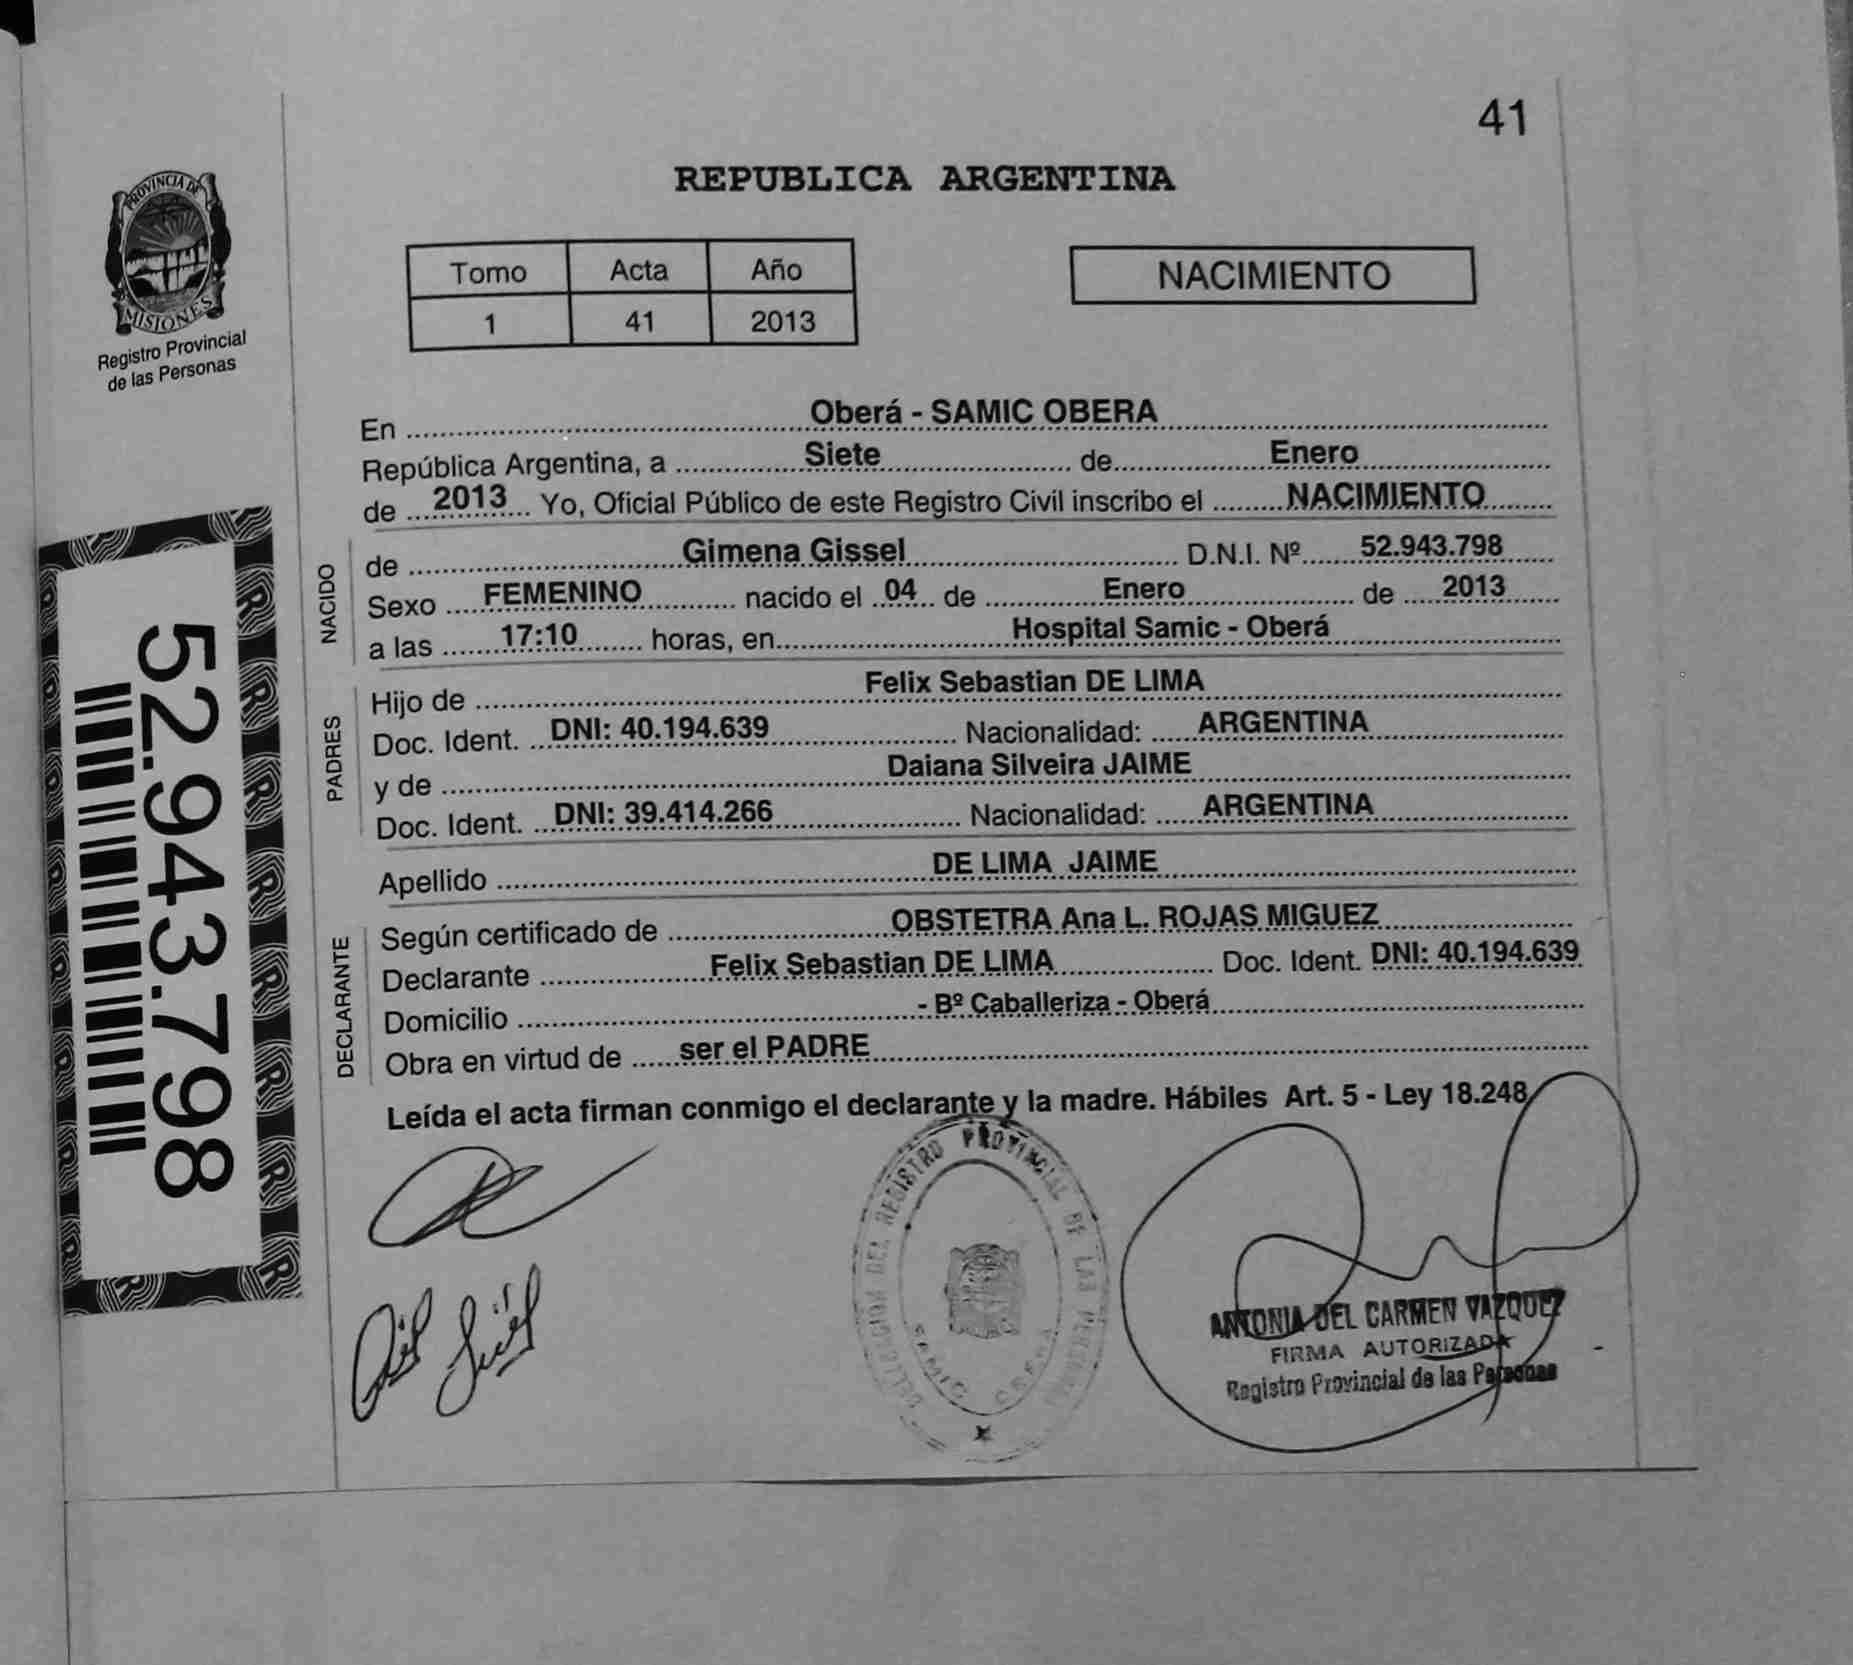 41
PROVINCIA DE
MISIONES
Registro Provincial
de las Personas
REPUBLICA ARGENTINA
Tomo Acta Año
1 41 2013
NACIMIENTO
En Oberá - SAMIC OBERA
República Argentina, a Siete de Enero
de 2013 Yo, Oficial Público de este Registro Civil inscribo el NACIMIENTO
NACIDO
de Gimena Gissel D.N.I. Nº 52.943.798
Sexo FEMENINO nacido el 04 de Enero de 2013
a las 17:10 horas, en Hospital Samic - Oberá
PADRES
Hijo de Felix Sebastian DE LIMA
Doc. Ident. DNI: 40.194.639 Nacionalidad: ARGENTINA
y de Daiana Silveira JAIME
Doc. Ident. DNI: 39.414.266 Nacionalidad: ARGENTINA
Apellido DE LIMA JAIME
DECLARANTE
Según certificado de OBSTETRA Ana L. ROJAS MIGUEZ
Declarante Felix Sebastian DE LIMA Doc. Ident. DNI: 40.194.639
Domicilio - Bº Caballeriza - Oberá
Obra en virtud de ser el PADRE
Leída el acta firman conmigo el declarante y la madre. Hábiles Art. 5 - Ley 18.248
52.943.798
DELEGACION DEL REGISTRO PROVINCIAL DE LAS PERSONAS
SAMIC OBERA
ANTONIA DEL CARMEN VAZQUEZ
FIRMA AUTORIZADA
Registro Provincial de las Personas